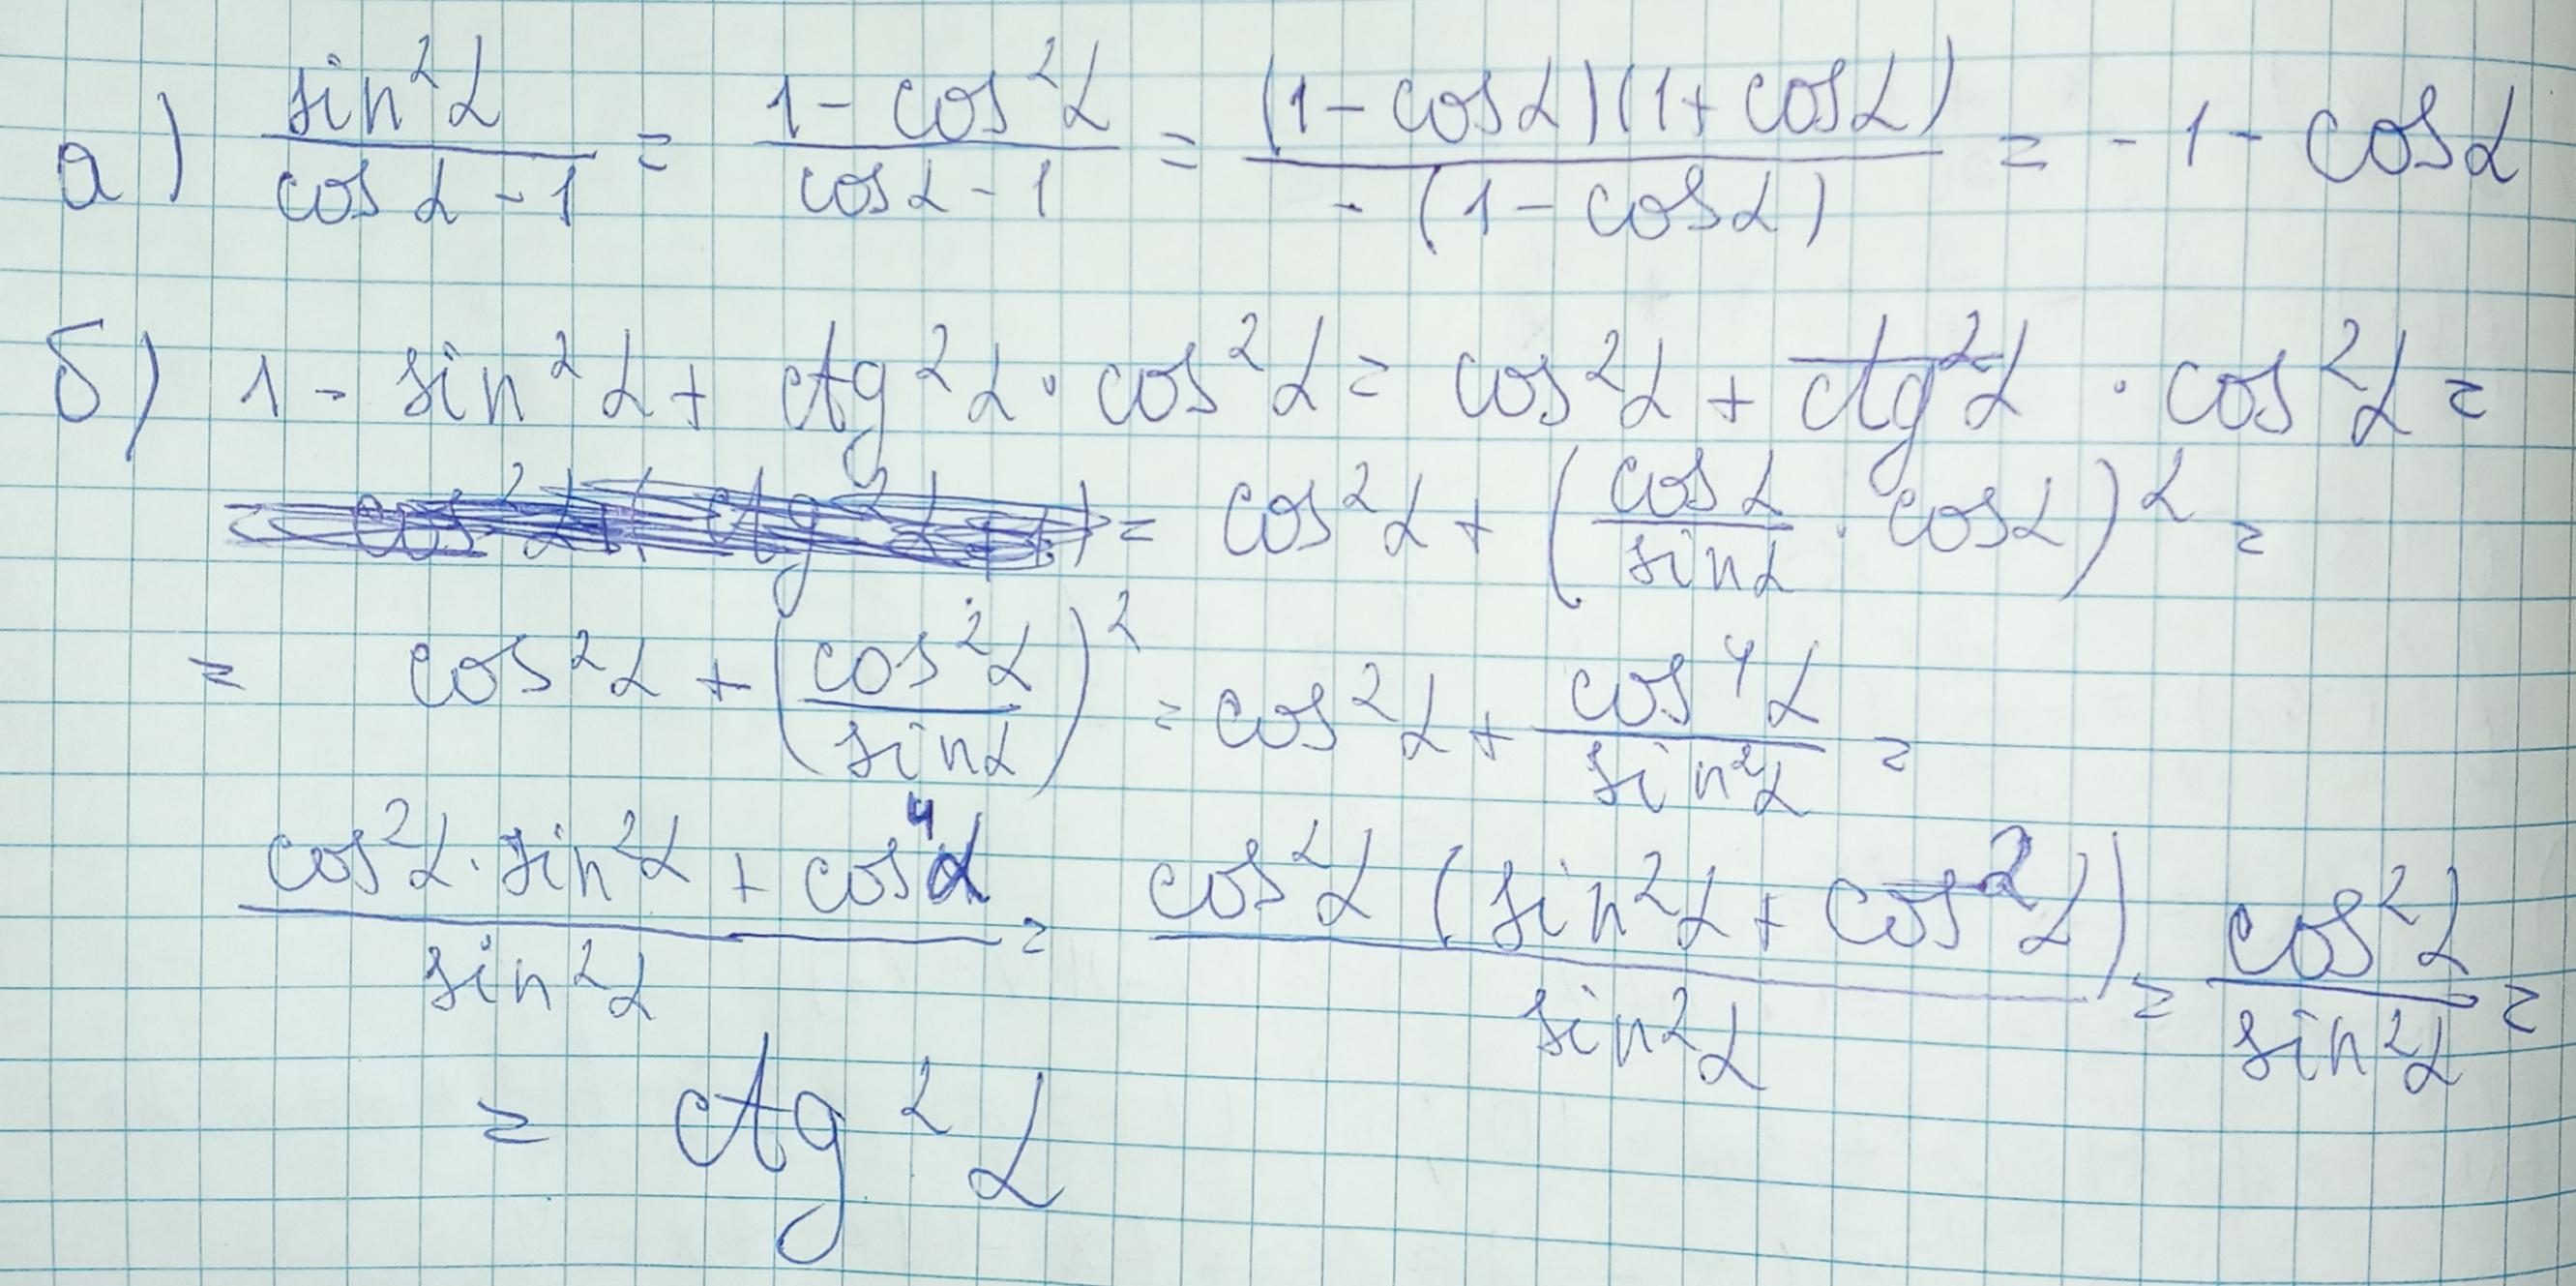 а) sin²α / (cos α - 1) = (1 - cos²α) / (cos α - 1) = (1 - cos α)(1 + cos α) / -(1 - cos α) = - 1 - cos α
б) 1 - sin²α + ctg²α · cos²α = cos²α + ctg²α · cos²α =
= cos²α + (cos α / sin α · cos α)² =
= cos²α + (cos²α / sin α)² = cos²α + cos⁴α / sin²α =
(cos²α · sin²α + cos⁴α) / sin²α = cos²α (sin²α + cos²α) / sin²α = cos²α / sin²α =
= ctg²α